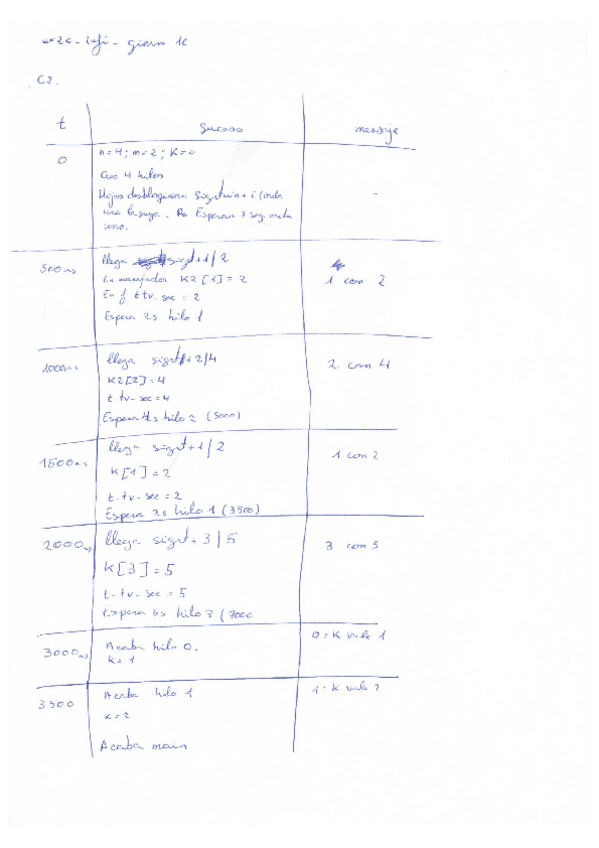 C2.
t suceso mensaje
0
n=4; m=2; K=0
Crea 4 hilos
Hijos desbloquean Sigrtmin+i (cada
una la suya. Esperan 3 seg. cada
uno.
500ms
llega sigrt+1/2
En manejador K2[1]=2
En f t.tv-sec = 2
Espera 2s hilo 1
1 con 2
1000ms
llega sigrt+2/4
K2[2]=4
t.tv-sec=4
Espera 4s hilo 2 (5000)
2 con 4
1500ms
llega sigrt+1/2
K[1]=2
t.tv-sec=2
Espera 2s hilo 1 (3500)
1 con 2
2000ms
llega sigrt+3|5
K[3]=5
t.tv-sec=5
Espera 5s hilo 3 (7000
3 con 5
3000ms
Acaba hilo 0.
K=1
0: K vale 1
3500
Acaba hilo 1
K=2
Acaba main
1: K vale 2